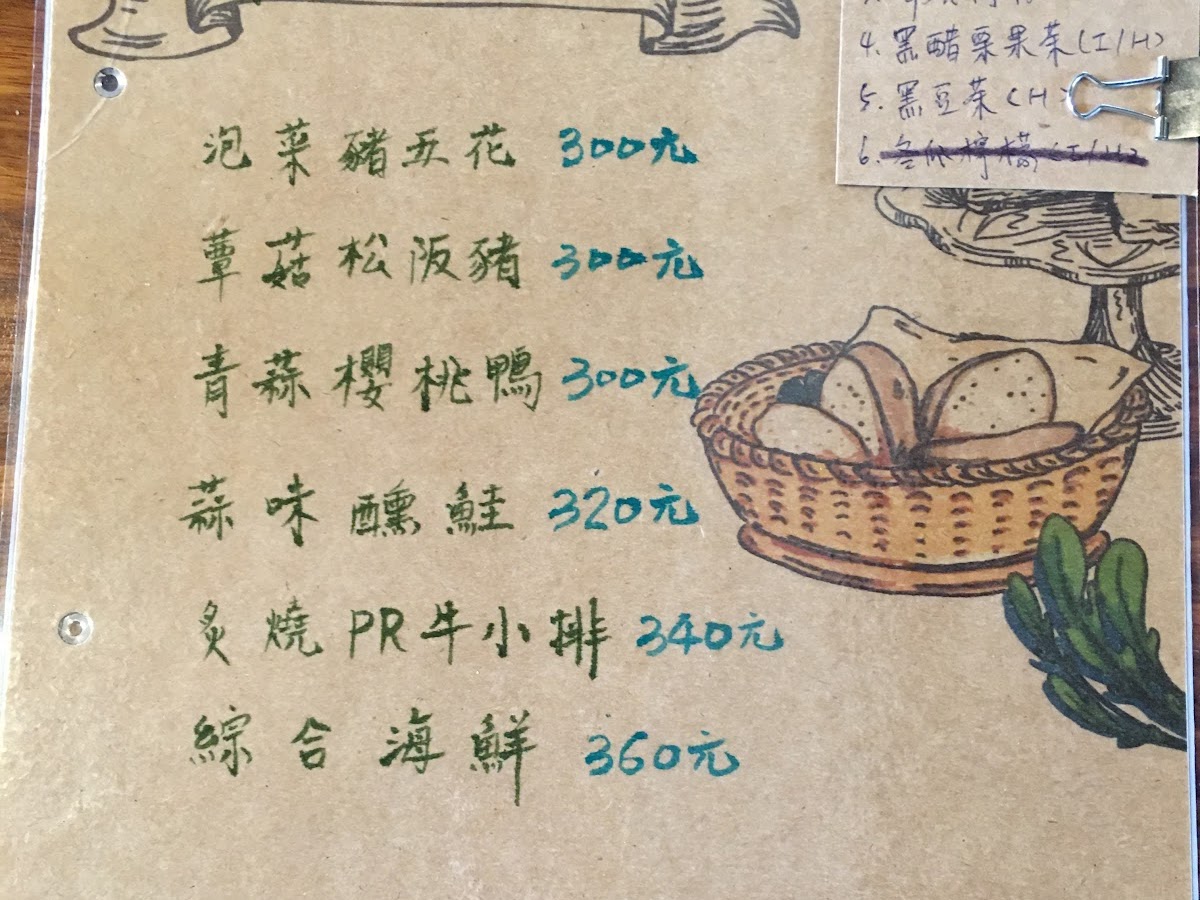 泡菜豬五花 300元
蕈菇松阪豬 300元
青蒜櫻桃鴨 300元
蒜味醺鮭 320元
炙燒PR牛小排 340元
綜合海鮮 360元
4. 黑醋栗果茶(I/H)
5. 黑豆茶(H)
6. 冬瓜檸檬(I/H)